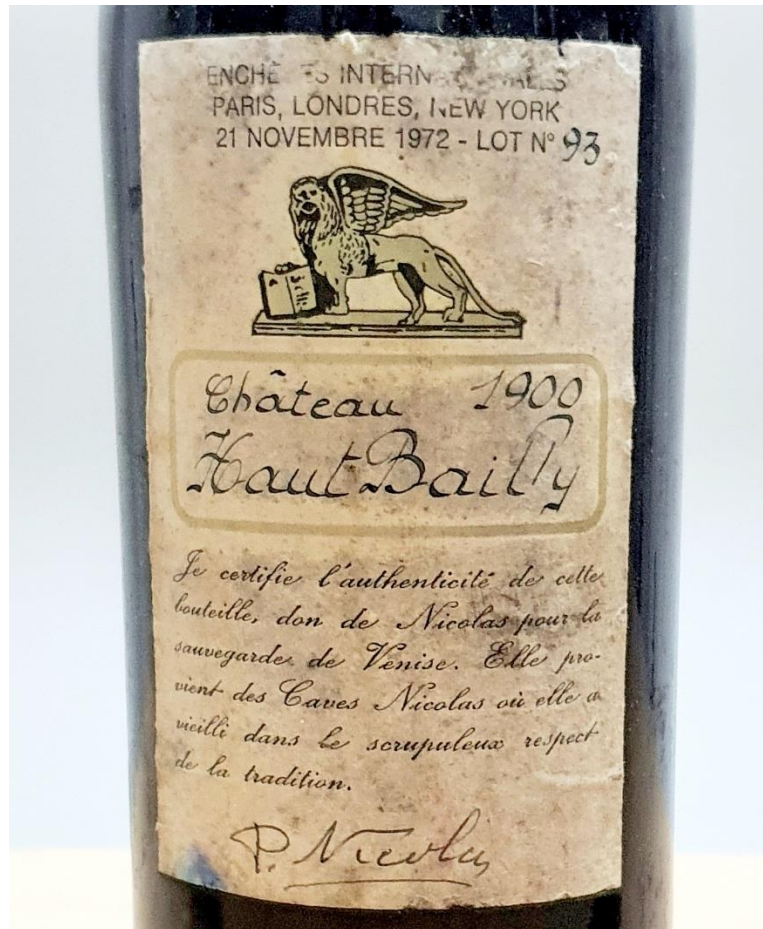 PARIS, LONDRES, NEW YORK
21 NOVEMBRE 1972 - LOT N° 93
Château 1900
Haut Bailly
Je certifie l'authenticité de cette
bouteille, don de Nicolas pour la
sauvegarde de Venise. Elle pro-
vient des Caves Nicolas où elle a
vieilli dans le scrupuleux respect
de la tradition.
P. Nicolas